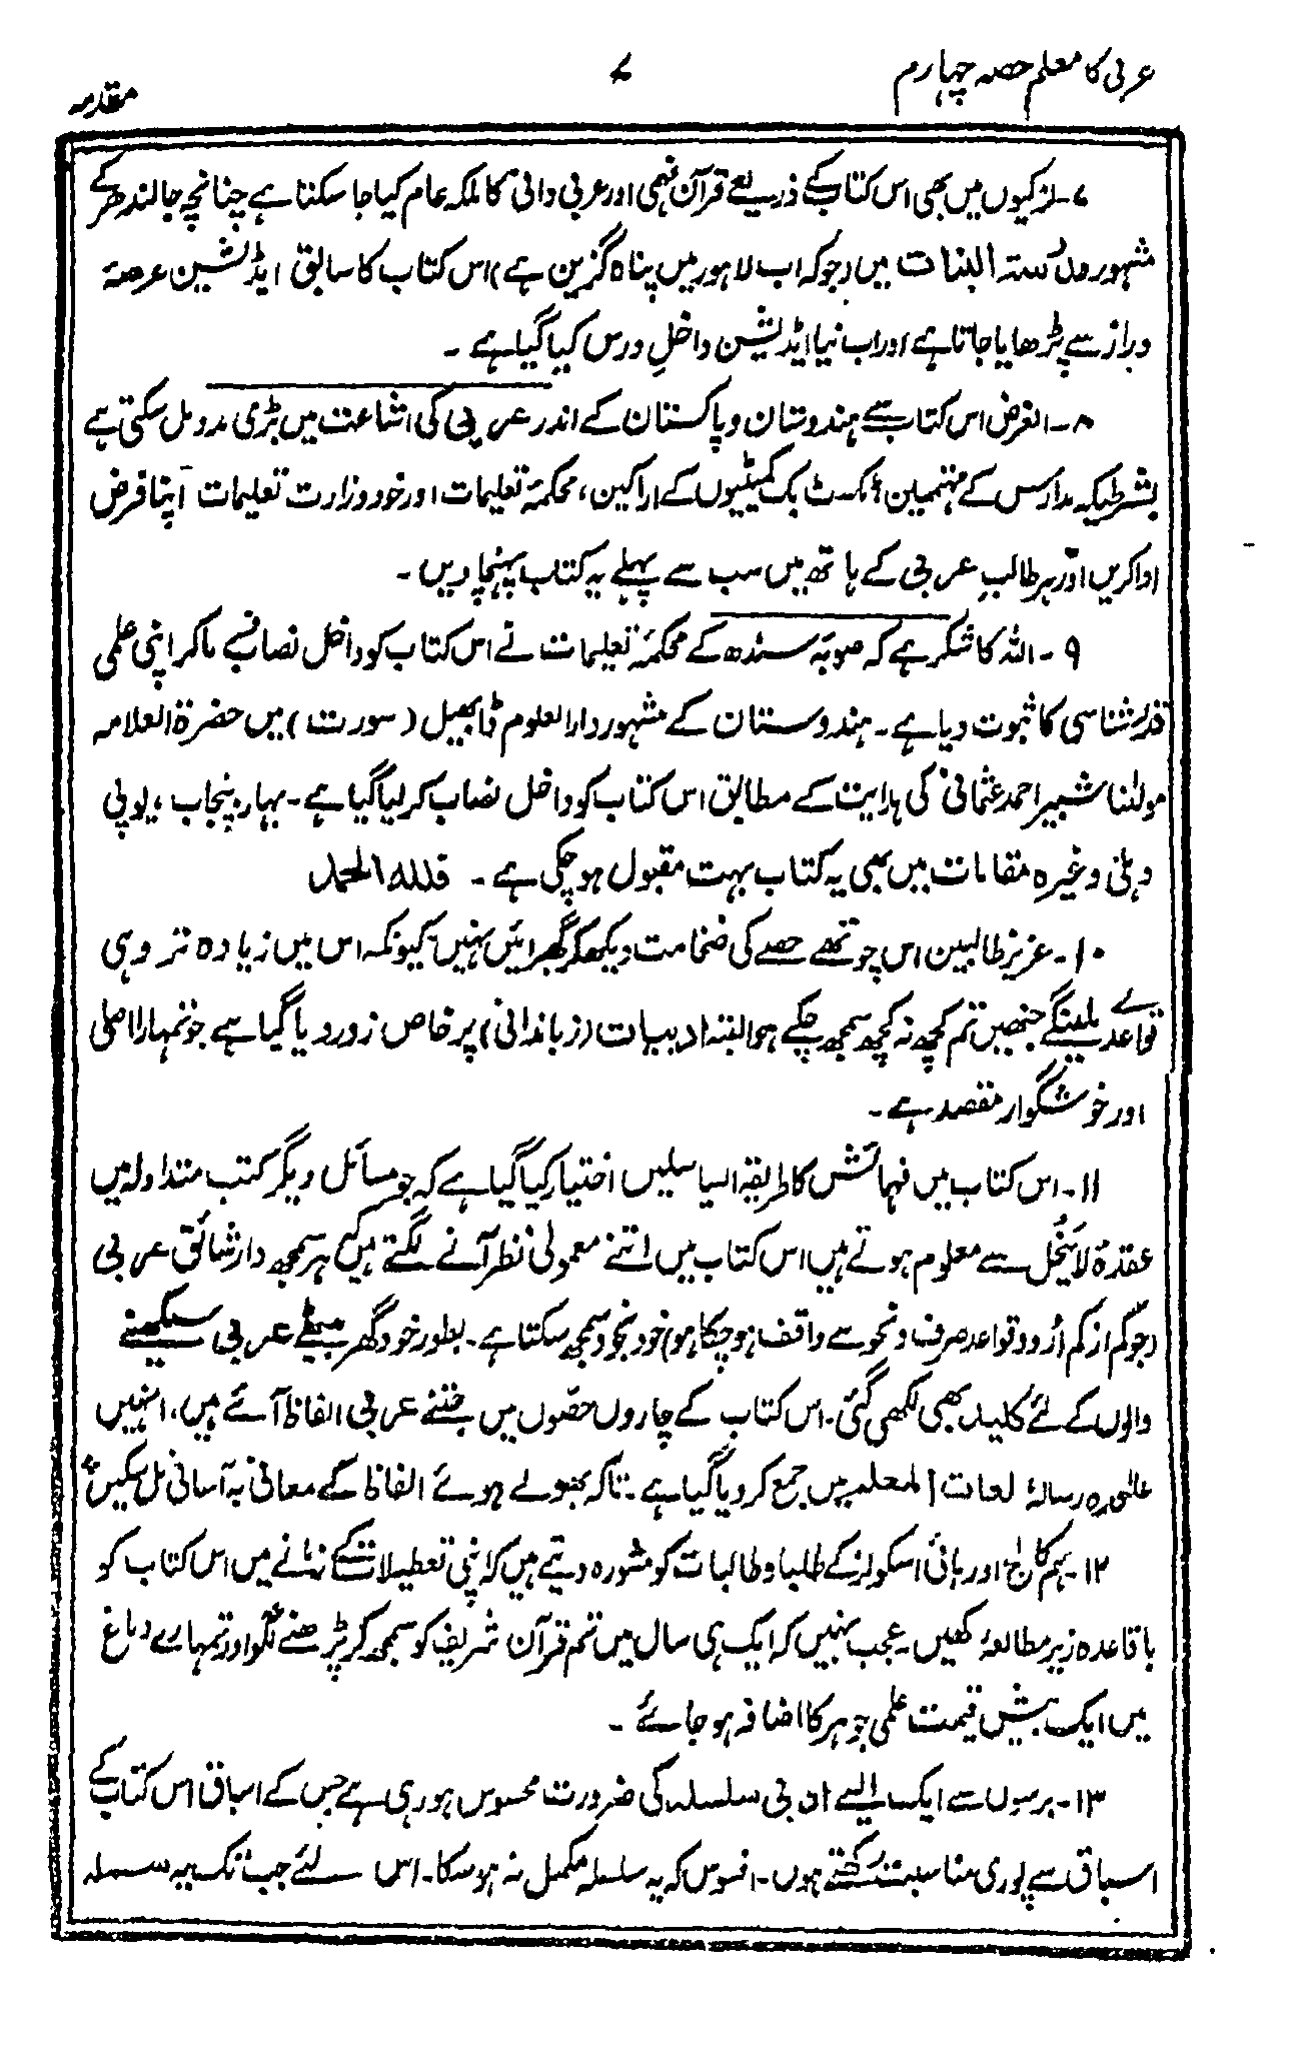 عربی کا معلم حصہ چہارم
۷
مقدمہ
۷۔ لڑکیوں میں بھی اس کتاب کے ذریعے قرآن فہمی اور عربی دانی کا ملکہ عام کیا جا سکتا ہے چنانچہ جالندھر کے
مشہور مدرستہ البنات میں (جو کہ اب لاہور میں پناہ گزین ہے) اس کتاب کا سابق ایڈیشین عرصۂ
دراز سے پڑھایا جاتا ہے اور اب نیا ایڈیشین داخلِ درس کیا گیا ہے ۔
۸۔ الغرض اس کتاب سے ہندوستان و پاکستان کے اندر عربی کی اشاعت میں بڑی مدد مل سکتی ہے
بشرطیکہ مدارس کے مہتممین، ٹکسٹ بک کمیٹیوں کے اراکین، محکمۂ تعلیمات اور خود وزارت تعلیمات اپنا فرض
ادا کریں اور ہر طالبِ عربی کے ہاتھ میں سب سے پہلے یہ کتاب پہنچا دیں ۔
۹۔ اللہ کا شکر ہے کہ صوبۂ سندھ کے محکمۂ تعلیمات نے اس کتاب کو داخل نصاب فرما کر اپنی علمی
قدر شناسی کا ثبوت دیا ہے ۔ ہندوستان کے مشہور دار العلوم ڈابھیل (سورت) میں حضرۃ العلامہ
مولٰنا شبیر احمد عثمانی کی ہدایت کے مطابق اس کتاب کو داخل نصاب کر لیا گیا ہے ۔ بہار، پنجاب، یوپی
دہلی وغیرہ مقامات میں بھی یہ کتاب بہت مقبول ہو چکی ہے ۔ فللہ الحمد
۱۰۔ عزیز طالبین اس چوتھے حصے کی ضخامت دیکھ کر گھبرائیں نہیں کیونکہ اس میں زیادہ تر وہی
قواعد ملینگے جنھیں تم کچھ نہ کچھ سمجھ چکے ہو البتہ ادبیات (زباندانی) پر خاص زور دیا گیا ہے جو تمہارا اصلی
اور خوشگوار مقصد ہے ۔
۱۱۔ اس کتاب میں فہمائش کا طریقہ ایسا سلیس اختیار کیا گیا ہے کہ جو مسائل دیگر کتب متداولہ میں
عقدۂ لایَنحَل سے معلوم ہوتے ہیں اس کتاب میں اتنے معمولی نظر آنے لگتے ہیں کہ ہر سمجھ دار شائق عربی
(جو کم از کم اُردو قواعد صرف و نحو سے واقف ہو چکا ہو) خود بخود سمجھ سکتا ہے ۔ بطور خود گھر بیٹھے عربی سیکھنے
والوں کے لئے کلید بھی لکھی گئی ۔ اس کتاب کے چاروں حصّوں میں جتنے عربی الفاظ آئے ہیں، انہیں
علٰحدہ رسالۂ لغات المعلم میں جمع کر دیا گیا ہے ۔ تاکہ بھولے ہوئے الفاظ کے معانی بہ آسانی مل سکیں
۱۲۔ ہم کالج اور ہائی اسکولز کے طلبا و طالبات کو مشورہ دیتے ہیں کہ اپنی تعطیلات کے زمانے میں اس کتاب کو
باقاعدہ زیر مطالعہ رکھیں ۔ عجب نہیں کہ ایک ہی سال میں تم قرآن شریف کو سمجھ کر پڑھنے لگو اور تمہارے دماغ
میں ایک بیش قیمت علمی جوہر کا اضافہ ہو جائے ۔
۱۳۔ برسوں سے ایک ایسے ادبی سلسلہ کی ضرورت محسوس ہو رہی ہے جس کے اسباق اس کتاب کے
اسباق سے پوری مناسبت رکھتے ہوں ۔ افسوس کہ یہ سلسلہ مکمل نہ ہو سکا ۔ اس لئے جب تک یہ سلسلہ